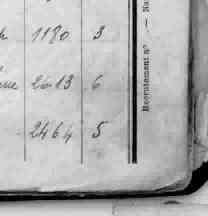 1180 3
2613 6
2464 5
Recrutement n° —